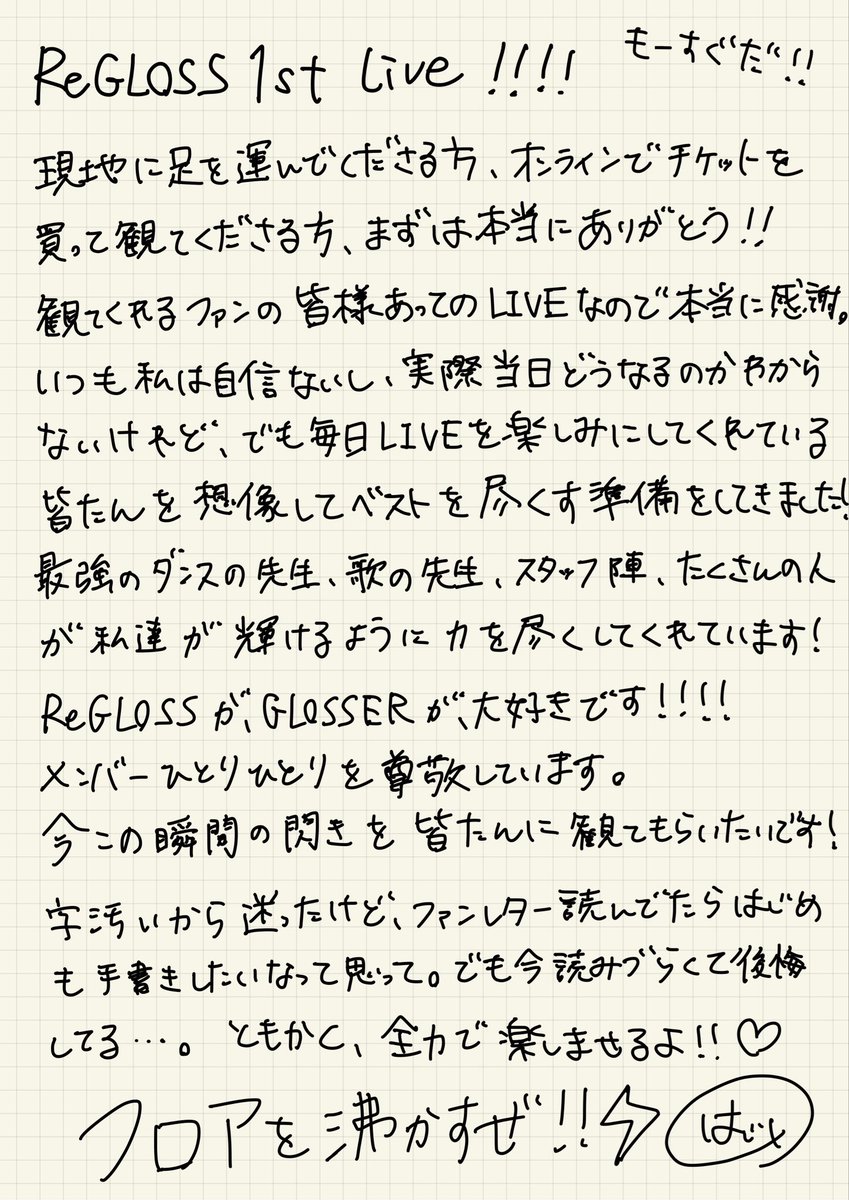 ReGLOSS 1st Live !!!! もーすぐだ!!
現地に足を運んでくださる方、オンラインでチケットを
買って観てくださる方、まずは本当にありがとう!!
観てくれるファンの皆様あってのLIVEなので本当に感謝。
いつも私は自信ないし、実際当日どうなるのかわから
ないけれど、でも毎日LIVEを楽しみにしてくれている
皆たんを想像してベストを尽くす準備をしてきました!
最強のダンスの先生、歌の先生、スタッフ陣、たくさんの人
が私達が輝けるように力を尽くしてくれています!
ReGLOSSが、GLOSSERが、大好きです!!!!
メンバーひとりひとりを尊敬しています。
今この瞬間の閃きを皆たんに観てもらいたいです!
字汚いから迷ったけど、ファンレター読んでたらはじめ
も手書きしたいなって思って。でも今読みづらくて後悔
してる…。ともかく、全力で楽しませるよ!!♡
フロアを沸かすぜ!!⚡ はじめ